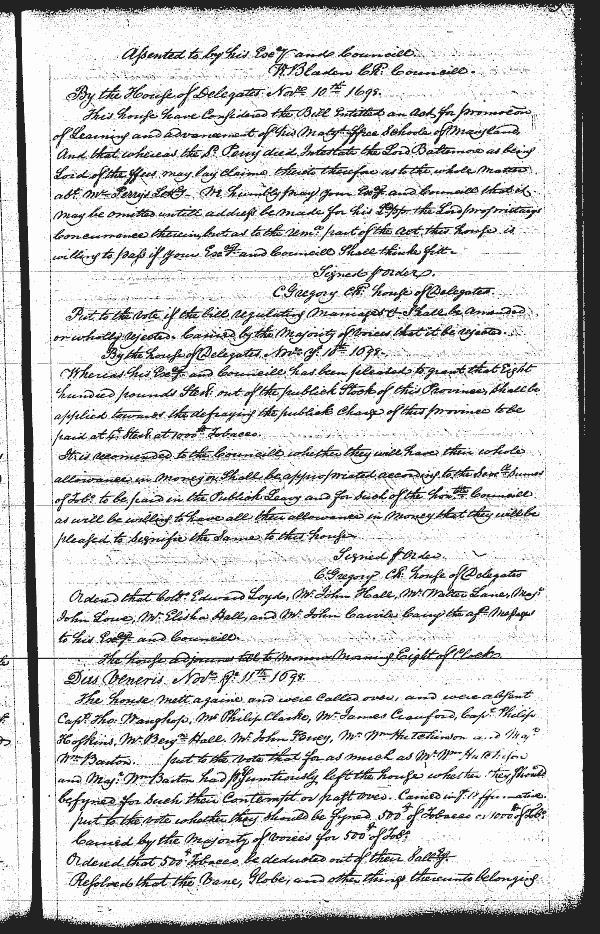 Assented to by his Exc.y and Councill.
W. Bladen Cl. Councill.
By the House of Delegates Nov.r 10.th 1698.
This house have Considered the Bill Entitled an Act for promotion
of Learning and advancement of his Maj.ts ffree Schools of Maryland
And that whereas the S.d Perry died Intestate the Lord Baltemore as being
Lord of the ffees may lay claime thereto therefore as to the whole matter
ab.t M.r Perrys We humbly pray your Exc.y and Councill that it
may be omitted untill address be made for his the Lord proprietarys
Concurrence therein, but as to the rem.g part of the Act, this house is
willing to pass if your Exc.y and Councill Shall thinke fitt.
Signed p Order.
C Gregory Cl. house of Delegates.
Put to the vote if the bill regulating Marriages &c. Shall be Amended
or wholly rejected. Carried by the Majority of voices that it be rejected.
By the house of Delegates. Nov.r 10.th 1698.
Whereas his Exc.y and Councill has been pleased to grant that Eight
hundred pounds Sterl. out of the publick Stock of this Province, Shall be
applied towards the defraying the publick Charge of this province to be
paid at Sterl. at 1000.ll Tobacco.
It is recomended to the Councill whether they will have their whole
allowance in money or Shall be appropriated according to the Sumes
of Tob.o to be paid in the Publick Leavy and for Such of the hon.ble Councill
as will be willing to have all their allowance in Money that they will be
pleased to Signifie the Same to this house
Signed p Order
C. Gregory Cl. house of Delegates
Ordered that Coll.o Edward Loyds, M.r John Hall, M.r Walter Lane, Maj.r
John Lowe, M.r Elisha Hall, and M.r John Carry the af.d Messages
to his Exc.y and Councill.
The house adjourns till to Morrow Morning Eight of Clock
Dies Veneris. Nov.r 11.th 1698.
The house mett againe and were called over, and were absent
Cap.t Tho: Waughop, M.r Philip Clarke, M.r James Crauford, Cap.t Philip
Hoskins, M.r Benj.n Hall, M.r John M.r W.m Hutchinson and Maj.r
W.m Barton. put to the vote that for as much as M.r W.m Hutchison
and Maj.r W.m Barton had left the house whether they Should
be fyned for Such their Contempt or past over. Carried in p. Affirmative.
put to the vote whether they Should be fyned 500 of Tobacco or 1000 of Tob.o
Carried by the Majority of voices for 500 of Tob.o
Ordered that 500 Tobacco, be deducted out of their Sallary.
Resolved that the Vane, Globe, and other things thereunto belonging